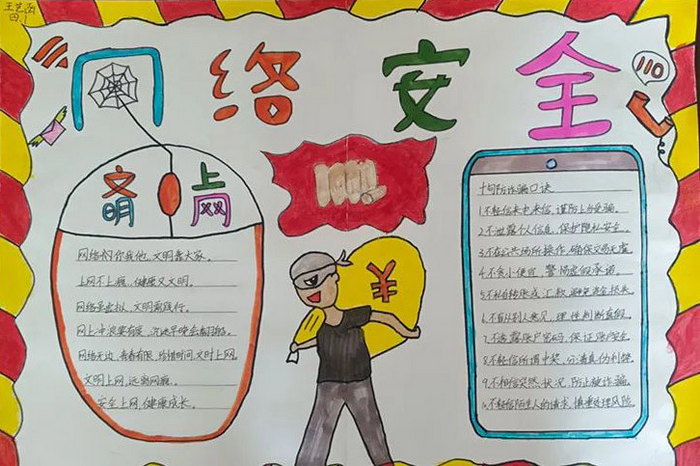 王艺函
四.1
网络安全
110
文明
上网
网络的你我他,文明靠大家。
上网不上瘾,健康又文明。
网络是虚拟,文明最践行。
网上冲浪要有度,沉迷早晚会翻船。
网络无边,青春有限,珍惜时间,文明上网。
文明上网,远离网瘾。
安全上网,健康成长。
¥
十句防诈骗口诀
1.不轻信来电来信,谨防上当受骗。
2.不泄露个人信息,保护隐私安全。
3.不在公共场所操作,确保交易无虞。
4.不贪小便宜,警惕虚假承诺。
5.不私自转账或汇款,避免资金损失。
6.不盲从别人意见,理性判断真假。
7.不透露账户密码,保证账户安全。
8.不轻信所谓中奖,分清真伪利弊。
9.不相信突然状况,防止被诈骗。
10.不轻信陌生人的请求,慎重处理风险。